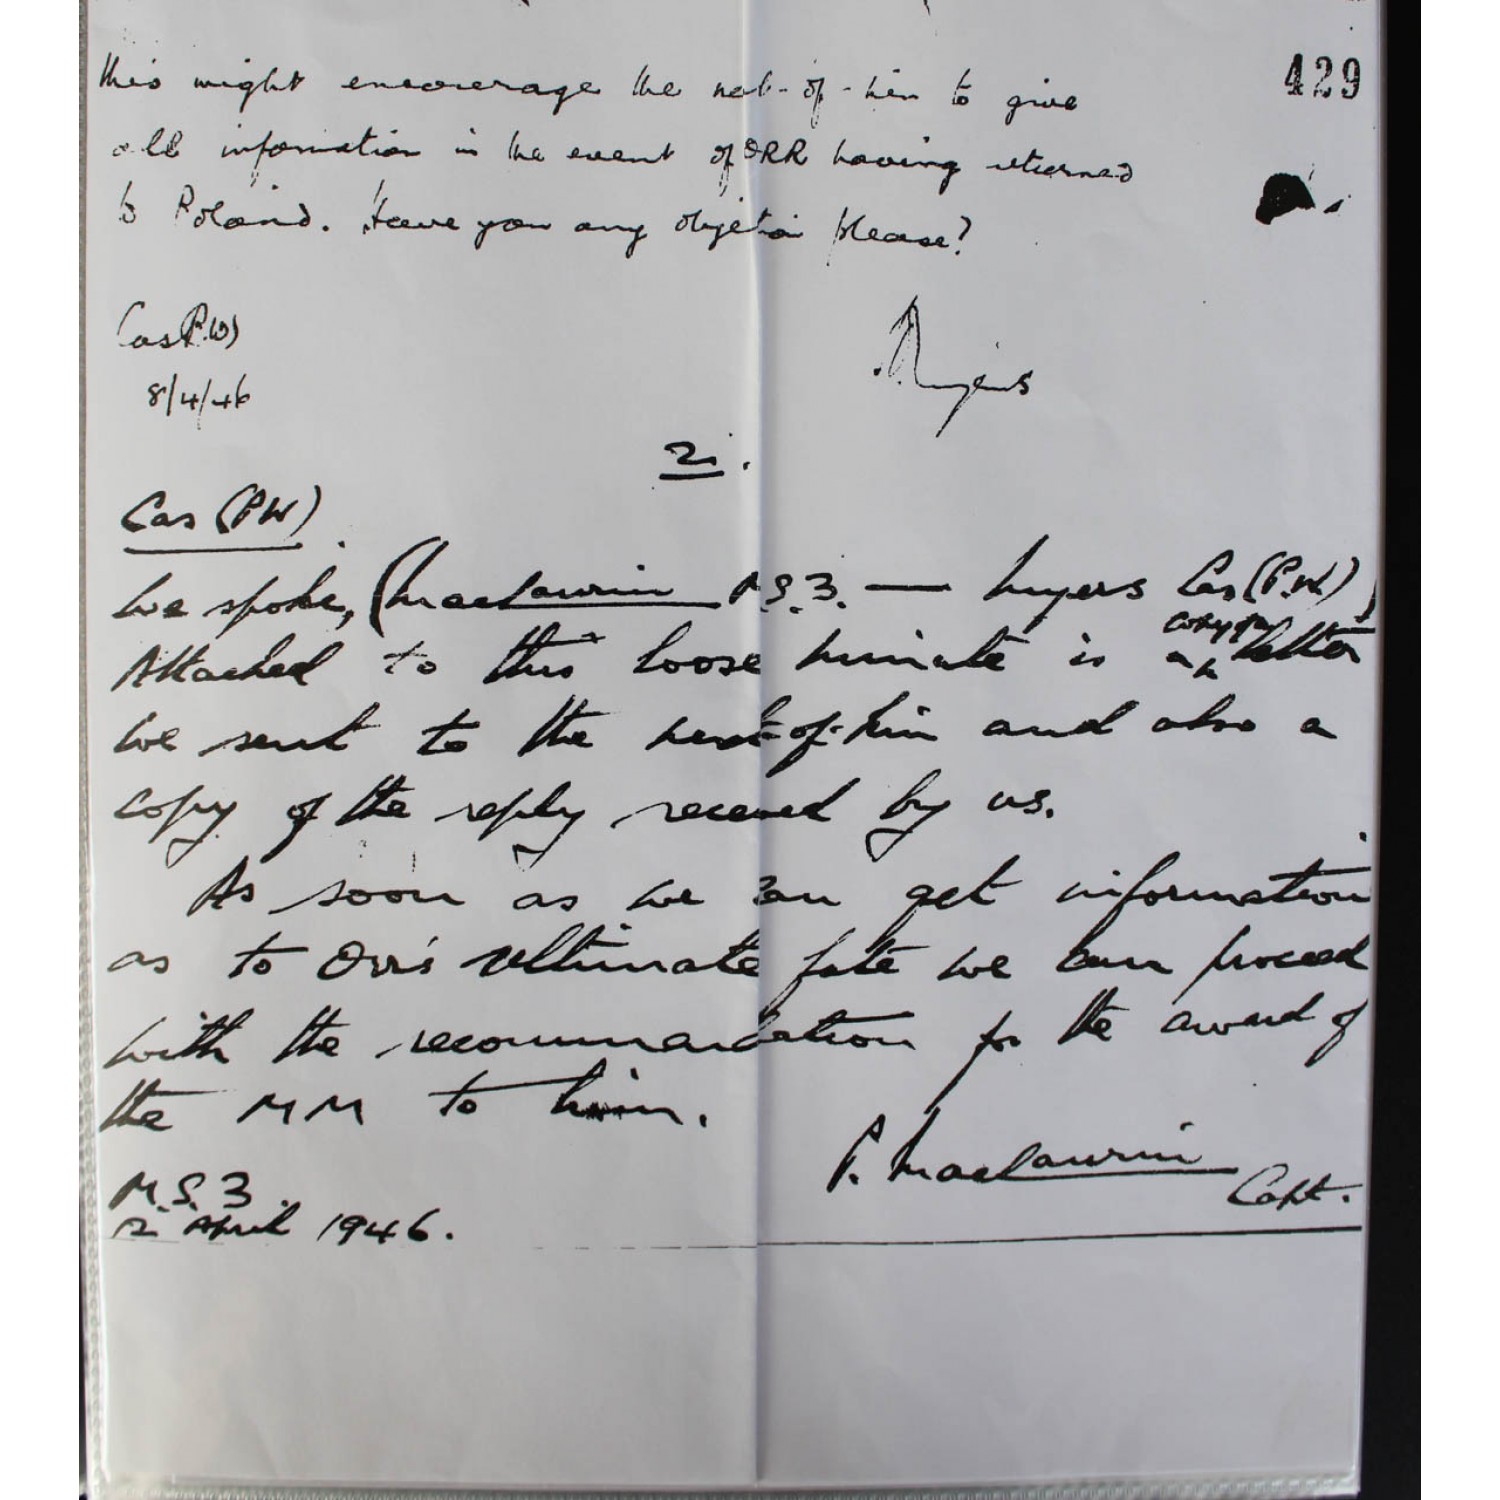 429
this might encourage the next-of-kin to give
all information in the event of ORR having returned
to Poland. Have you any objection please?
Cas P.W)
8/4/46
Myers
2.
Cas (PW)
We spoke, (Maclaurin M.S.3. — Myers Cas (P.W)
copy of
Attached to this loose minute is a letter
we sent to the next-of-kin and also a
copy of the reply received by us.
As soon as we can get information
as to Orr's ultimate fate we can proceed
with the recommendation for the award of
the MM to him.
P. Maclaurin
Capt.
M.S.3.
April 1946.